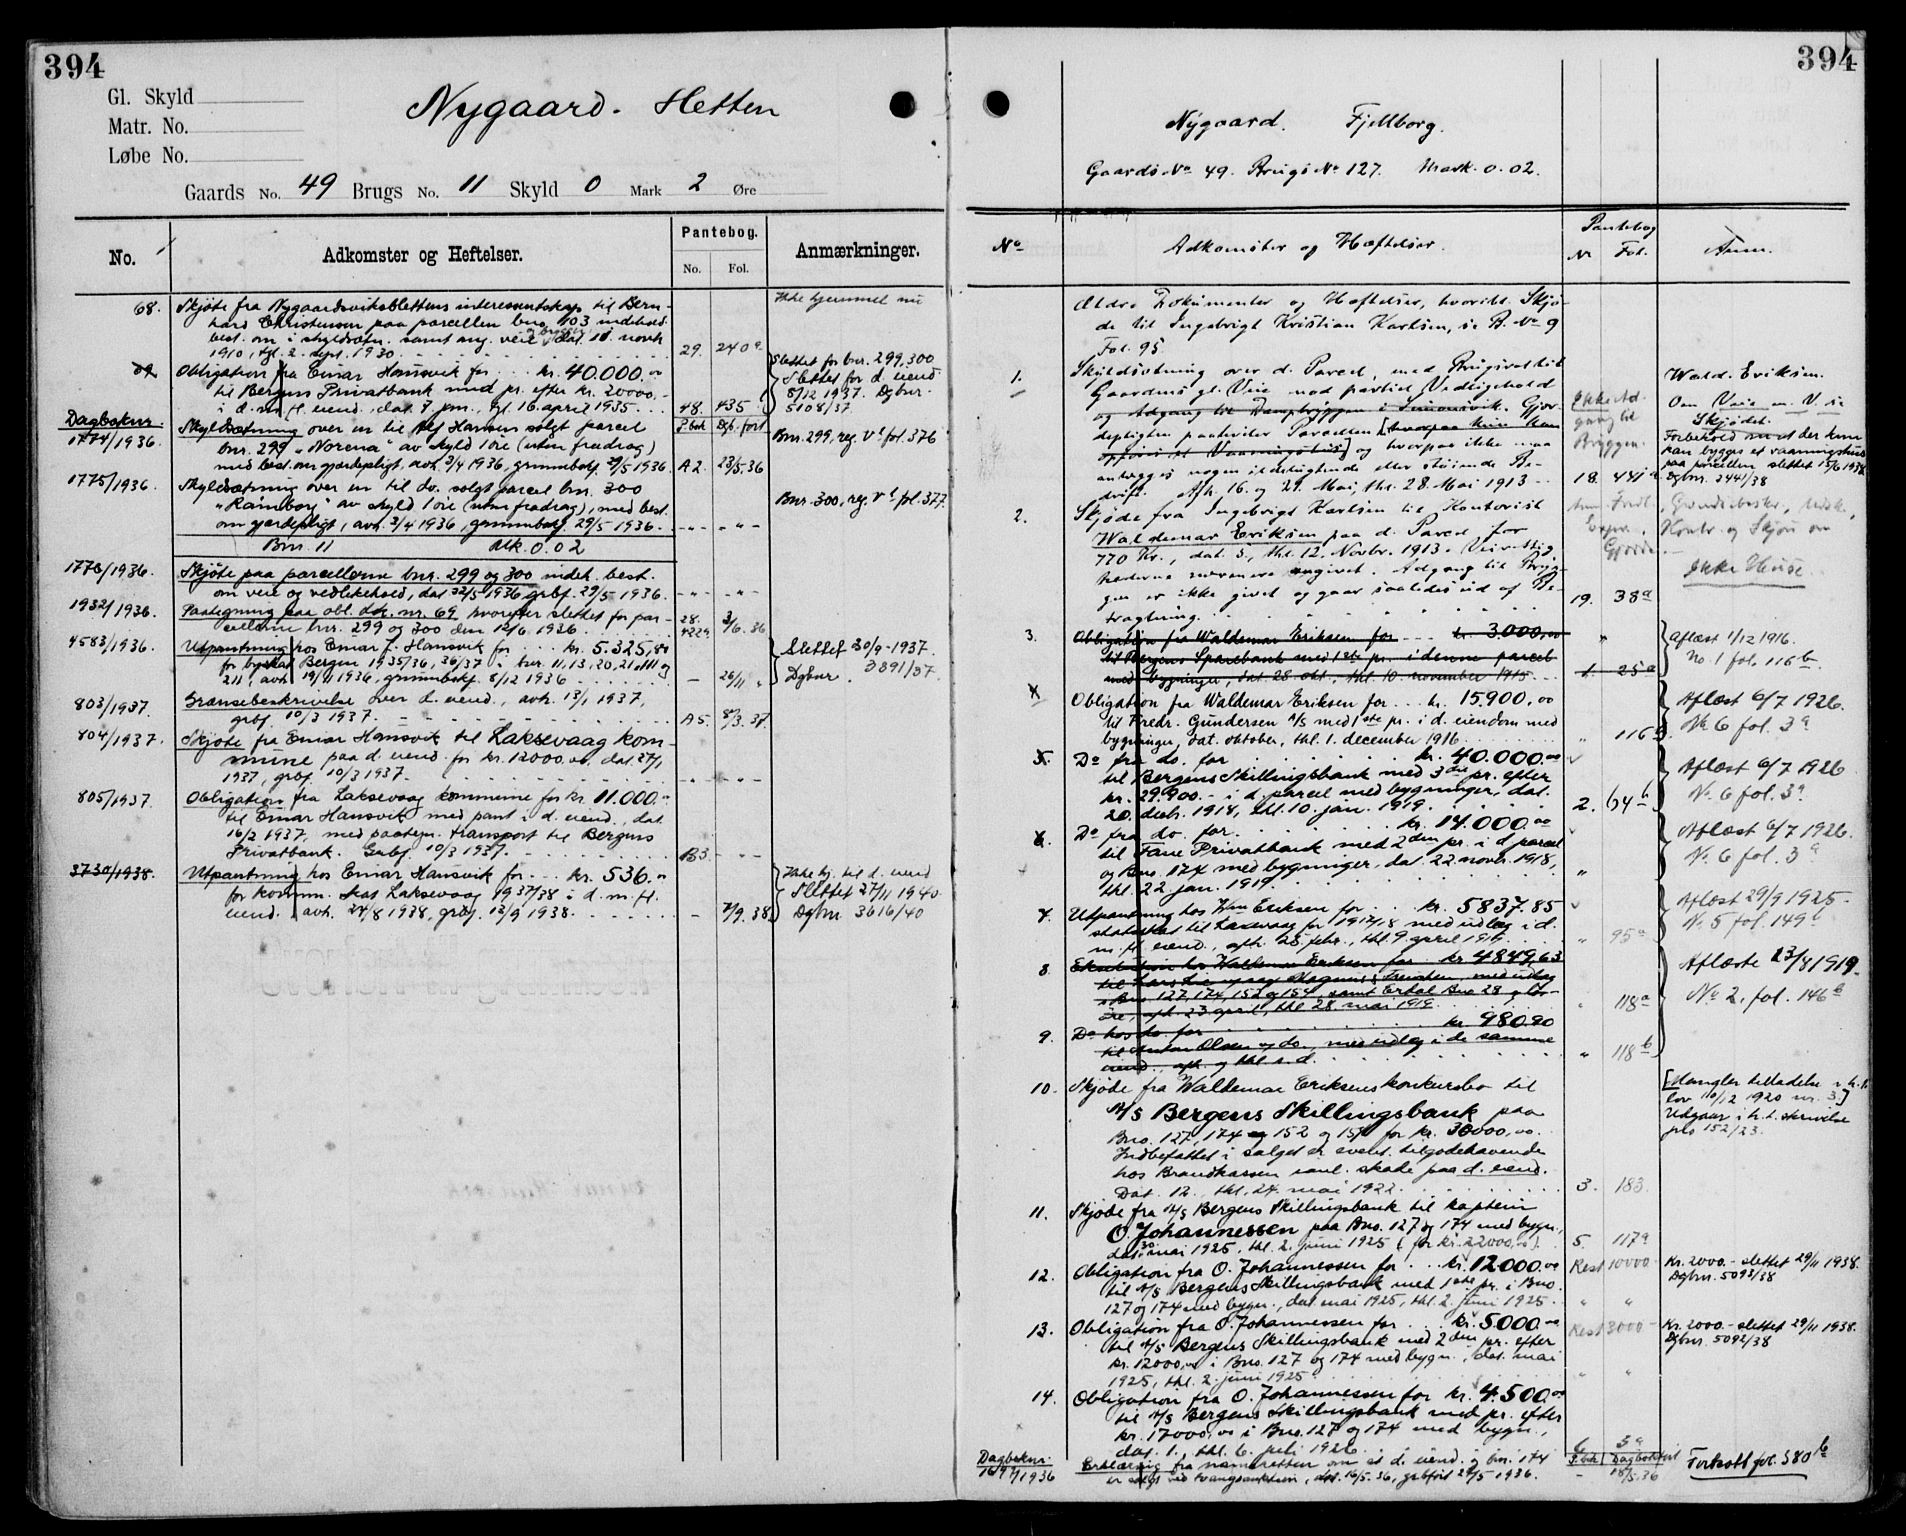 394
Gl. Skyld
Matr. No.
Løbe No.
Nygaard. Hetten
Gaards No. 49 Brugs No. 11 Skyld 0 Mark 2 Øre
No.
Adkomster og Heftelser.
Pantebog.
No. Fol.
Anmærkninger.
68. Skjøte fra Nygaardsviksblettens interessentskap til Bern-
hard Christensen paa parcellen bno. 103 indehold.
best. om i skyldsetn. samt ang. veie og brygge, dat. 11. novbr.
1910, tgl. 2. sept. 1930 29. 240a
Ikke hjemmel nu
69. Obligation fra Einar Hansvik for kr. 40.000.00
til Bergens Privatbank med pr. efter kr. 20000,-
i d. m. fl. eiend., dat. 7. jan., tgl. 16. april 1935. 48. 435
Slettet for bnr. 299, 300
Slettet for d. eiend
8/12 1937. Dgbnr
5108/37.
Dagboknr. P.bok Dgb. ført
1774/1936 Skyldsætning over en til Alf Hansen solgt parcel
bnr. 299 "Norena" av skyld 1 øre (uten fradrag)
med best. om gjærdepligt, avh. 3/4 1936, grunnboksf. 29/5 1936. A2. 23/5.36
Bnr. 299, reg. V' fol. 376
1775/1936. Skyldsætning over en til do. solgt parcel bnr. 300
"Ramborg" av skyld 1 øre (uten fradrag), med best.
om gjærdepligt, avh. 3/4 1936, grunnboksf. 29/5 1936. - " - - " -
Bnr. 300, reg. V' fol. 377.
Bnr. 11 Mk. 0.02
1776/1936. Skjøte paa parcellerne bnr. 299 og 300 indeh. best.
om veie og vedlikehold, dat. 22/5 1936, grbf. 29/5 1936. - " - - " -
1932/1936. Paategning paa obl. dok. nr. 69 hvorefter slettet for par-
cellerne bnr. 299 og 300 den 12/6 1936 28. 4229. 3/6.36
4583/1936. Utpantning hos Einar J. Hansvik for kr. 5.325,80
for byskat Bergen 1935/36, 36/37 i bnr. 11, 13, 20, 21, 111 og
211, avh. 19/11 1936, grunnboksf. 8/12 1936 - 26/11 "
Slettet 30/9-1937.
Dgbnr. 3891/37.
803/1937. Grænsebeskrivelse over d. eiend., avh. 13/1 1937,
grbf. 10/3 1937. A5. 8/3.37.
804/1937. Skjøte fra Einar Hansvik til Laksevaag kom-
mune paa d. eiend. for kr. 12000,00, dat. 27/1
1937, grbf. 10/3 1937. - " - - " -
805/1937. Obligation fra Laksevaag kommune for kr. 11.000.-
til Einar Hansvik med pant i d. eiend., dat.
16/2 1937, med paategn. transport til Bergens
Privatbank. Grbf. 10/3 1937. B3. - " -
3730/1938. Utpantning hos Einar Hansvik for kr. 536.00
for komm. skat Laksevaag 1937/38 i d. m. fl.
eiend. avh. 24/8 1938, grbf. 13/9 1938. - 7/9.38
Ikke hj. til d. eiend
Slettet 27/11 1940
Dgbnr 3616/40
394
Nygaard. Fjellborg.
Gaards No 49. Brugs No 127. Mark. 0.02.
No
Adkomster og Hæftelser.
Pantebog
Nr Fol.
Anm.
Ældre Dokumenter og Hæftelser, hvoribl. Skjø-
de til Ingebrigt Kristian Karlsen, se B. No 9
Fol. 95.
1. Skyldsætning over d. Parcel, med Brugsret til
Gaardens gl. Veie mod partiel Vedligehold
og Adgang til Dampbryggen i Simonsvik. Gjær-
depligten paahviler Parcellen [hvorpaa kun kan
opføres et Vaaningshus] og hvorpaa ikke maa
anlægges nogen ildelugtende eller støiende Be-
drift. Afh. 16. og 21. Mai, thl. 28. Mai 1913 18. 441a
Ikke Ad-
gang til
Bryggen.
Wald. Eriksen.
Om Veie m. V. se
Skjødet.
Forbehold om at der kun
kan bygges et vaaningshus
paa parcellen slettet 15/6 1938
Dgbnr. 2441/38
2. Skjøde fra Ingebrigt Karlsen til Kontorist
Waldemar Eriksen paa d. Parcel for
770 Kr., dat. 3., thl. 12. Novbr. 1913. Veirettig-
hederne nærmere angivet. Adgang til Bryg-
gen er ikke givet og gaar saaledes ud af Be-
tragtning. 19. 38a
Ikke Huse.
3. Obligation fra Waldemar Eriksen for kr. 3000,00
til Bergens Sparebank med 1ste pr. i denne parcel
med bygninger, dat. 28. okt., thl. 10. november 1915 1. 25a
Aflæst 1/12 1916.
No. 1 fol. 116b.
4. Obligation fra Waldemar Eriksen for kr. 15.900,00
til Fredr. Gundersen A/S med 1ste pr. i d. eiendom med
bygninger, dat. oktober, thl. 1. december 1916 " 116b.
Aflæst 6/7 1926.
No 6 fol. 3a
5. Do fra do. for kr. 40.000.00
til Bergens Skillingsbank med 3die pr. efter
kr. 29.900.- i d. parcel med bygninger, dat.
20. decbr. 1918, thl. 10. jan. 1919. 2. 64b
Aflæst 6/7 1926
No. 6 fol. 3a.
6. Do fra do. for kr. 14.000.00
til Fane Privatbank med 2den pr. i d. parcel
og Bno. 174 med bygninger, dat. 22 novbr. 1918,
thl. 22 jan. 1919. "
Aflæst 6/7 1926.
No. 6 fol. 3a
7. Utpantning hos Wm Eriksen for kr. 5837.85
statsskat til Laxevaag for 1917/18 med udlæg i d.
m. fl. eiend., afh. 28. febr., thl. 9. april 1919 " 95a
Aflæst 29/9 1925-
No. 5 fol. 149b
8. Eksekution hos Waldemar Eriksen for kr. 4849,63
til Lars Lie og sag Magnus Fremstien, med udlæg
i Bno. 127, 174, 152 og 154, samt Ertdal Bno 28 og løs-
øre, afh. 23. april, thl. 28. mai 1919. " 118a
Aflæste 23/8 1919.
No 2. fol. 146b
9. Do hos do. for kr. 980.90
til Anton Olsen og do., med udlæg i de samme
eiend., afh. og thl. s. d. " 118b
10. Skjøde fra Waldemar Eriksens konkursbo til
A/S Bergens Skillingsbank paa
Bno. 127, 174 og 152 og 154 for kr. 30000,00.
Indbefattet i salget er evelt. tilgodehavende
hos Brandkassen ianl. skade paa d. eiend.
Dat. 12., thl. 24. mai 1922. 3. 183.
[Mangler tilladelse i h. t.
lov 10/12 1920 nr. 3.]
Udgaar i h. t. skrivelse
jnls 152/23.
11. Skjøde fra A/S Bergens Skillingsbank til kaptein
O. Johannessen paa Bno. 127 og 174 med bygn.,
dat. 30 mai 1925, thl. 2. juni 1925 (for kr. 22000,00). 5. 117a
12. Obligation fra O. Johannessen for kr. 12.000.00
til A/S Bergens Skillingsbank med 1ste pr. i Bno.
127 og 174 med bygn., dat. mai 1925, thl. 2. juni 1925. " "
Rest 10000.-
Kr. 2000.- slettet 29/11 1938.
Dgbnr. 5092/38
13. Obligation fra O. Johannessen for kr. 5000.00
til A/S Bergens Skillingsbank med 2den pr. efter
kr. 12000,00 i Bno. 127 og 174 med bygn., dat. mai
1925, thl. 2. juni 1925 " "
Rest 3000.-
Kr. 2000.- slettet 29/11 1938.
Dgbnr. 5092/38
14. Obligation fra O. Johannessen for kr. 4.500.00
til A/S Bergens Skillingsbank med pr. efter
kr. 17000,00 i Bno. 127 og 174 med bygn.,
dat. 1., thl. 6. juli 1926 6. 3a
Dagboknr. P.bok Dagbokført
1936 Erklæring fra namsretten om at d. eiend. og bnr. 174
er solgt ved tvangsauktion, dat. 16/5.36, grbført 29/5 1936. - 18/5.36
Fortsatt fol. 580b